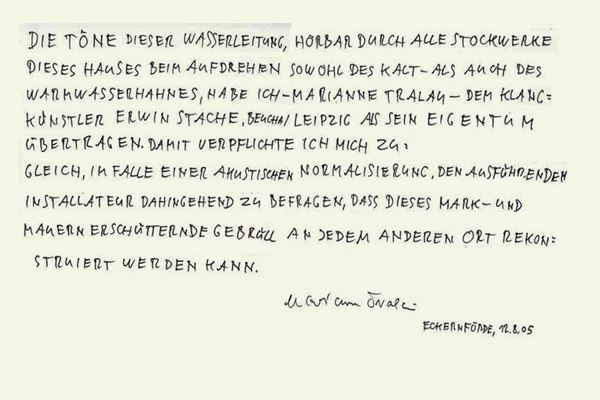 DIE TÖNE DIESER WASSERLEITUNG, HÖRBAR DURCH ALLE STOCKWERKE
DIESES HAUSES BEIM AUFDREHEN SOWOHL DES KALT- ALS AUCH DES
WARMWASSERHAHNES, HABE ICH – MARIANNE TRALAU – DEM KLANG=
KÜNSTLER ERWIN STACHE, BEUCHA/LEIPZIG ALS SEIN EIGENTUM
ÜBERTRAGEN. DAMIT VERPFLICHTE ICH MICH ZU=
GLEICH, IM FALLE EINER AKUSTISCHEN NORMALISIERUNG, DEN AUSFÜHRENDEN
INSTALLATEUR DAHINGEHEND ZU BEFRAGEN, DASS DIESES MARK- UND
MAUERN ERSCHÜTTERNDE GEBRÜLL AN JEDEM ANDEREN ORT REKON=
STRUIERT WERDEN KANN.
ECKERNFÖRDE, 12.8.05